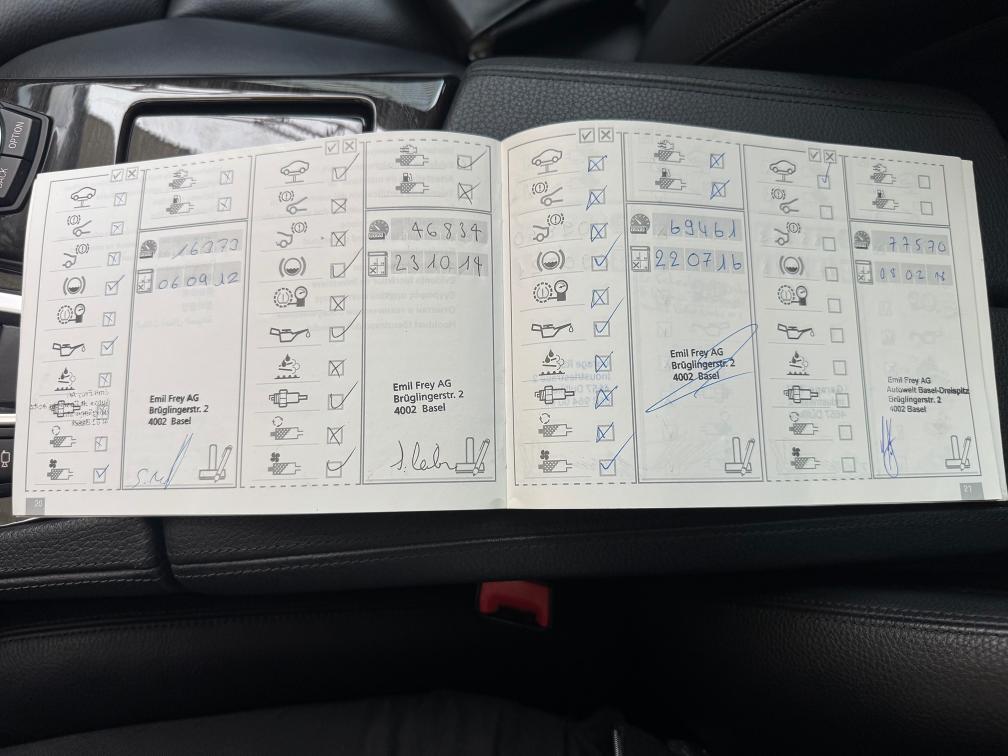 OPTION
BACK
060912
Emil Frey AG
Brüglingerstr. 2
4002 Basel
20
46834
231014
Emil Frey AG
Brüglingerstr. 2
4002 Basel
69461
220716
Emil Frey AG
Brüglingerstr. 2
4002 Basel
77570
Emil Frey AG
Autowelt Basel-Dreispitz
Brüglingerstr. 2
4002 Basel
21